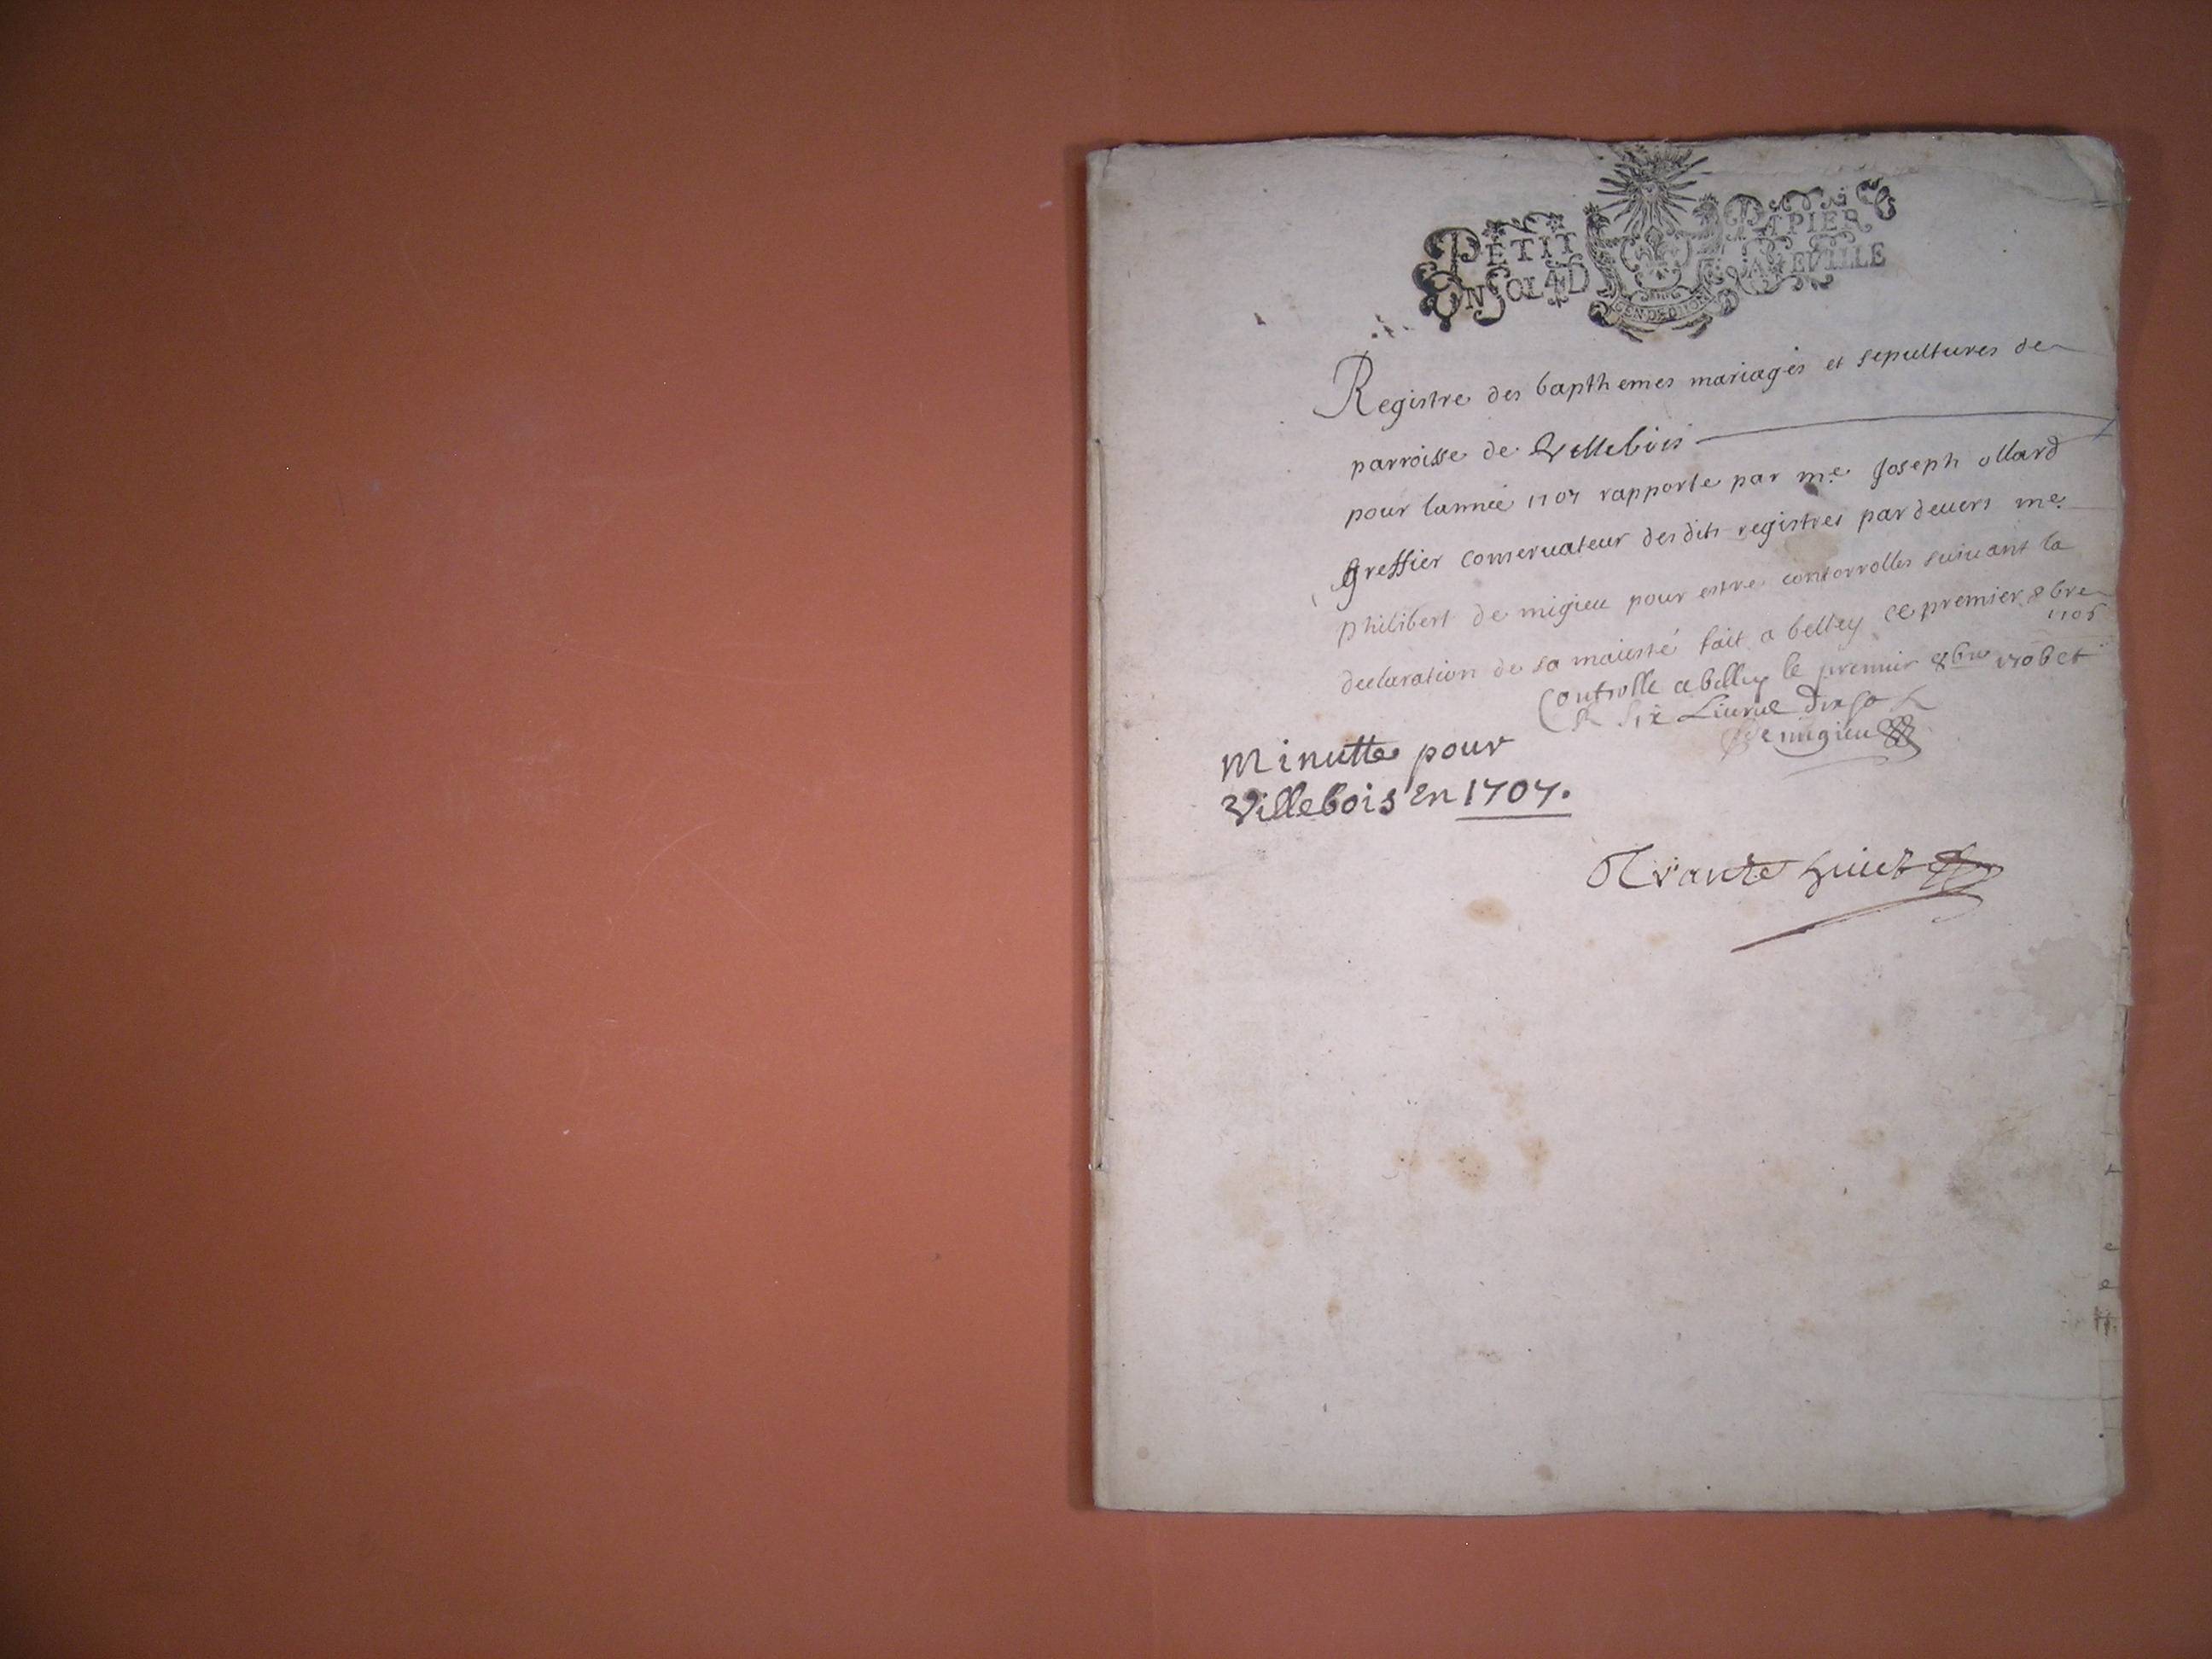 PETIT PAPIER
UN SOL 4 D LA FEUILLE
GEN DE DIION
Registre des bapthemes mariages et sepultures de
parroisse de Villebois
pour lannée 1707 rapporte par me Joseph ollard
greffier conseruateur desdits registres pardeuers me
philibert de migieu pour estre controrolles suiuant la
declaration de sa maiesté fait a belley ce premier 8bre
1706
Controlle a belley le premier 8bre 1706 et
R six Liures dix so
de migieu
Minutte pour
Villebois en 1707.
Trante huict